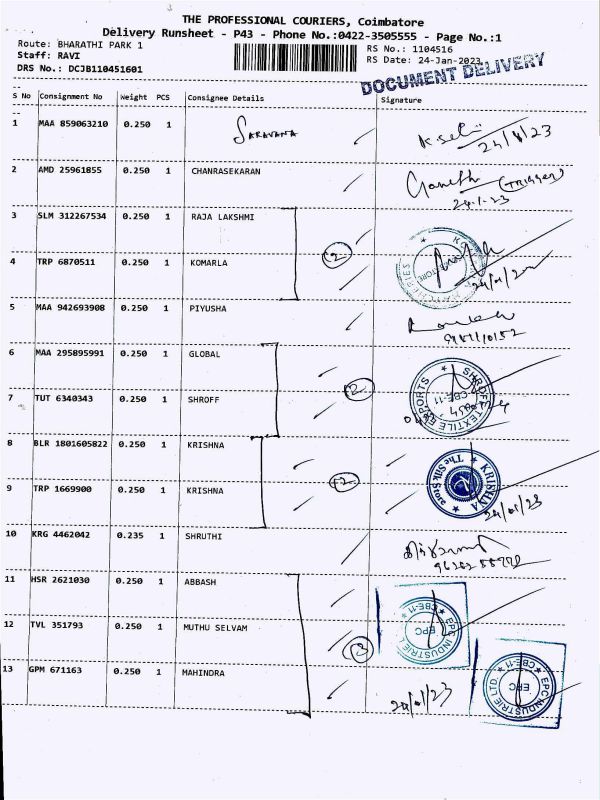 THE PROFESSIONAL COURIERS, Coimbatore
Delivery Runsheet - P43 - Phone No.:0422-3505555 - Page No.:1
Route: BHARATHI PARK 1 RS No.: 1104516
Staff: RAVI RS Date: 24-Jan-2023
DRS No.: DCJB110451601
DOCUMENT DELIVERY
S No Consignment No Weight PCS Consignee Details Signature
1 MAA 859063210 0.250 1 SARAVANA 24/1/23
2 AMD 25961855 0.250 1 CHANRASEKARAN Ganesh (Trigger)
24-1-23
3 SLM 312267534 0.250 1 RAJA LAKSHMI
2
4 TRP 6870511 0.250 1 KOMARLA
5 MAA 942693908 0.250 1 PIYUSHA
6 MAA 295895991 0.250 1 GLOBAL
2 SHROFF TEXTILE EXPORTS CBE-11
7 TUT 6340343 0.250 1 SHROFF
8 BLR 1801605822 0.250 1 KRISHNA
2 KRISHNA The Silk Store
9 TRP 1669900 0.250 1 KRISHNA 24/01/23
10 KRG 4462042 0.235 1 SHRUTHI
11 HSR 2621030 0.250 1 ABBASH
EPC INDUSTRIE L CBE-11 EPC
12 TVL 351793 0.250 1 MUTHU SELVAM
3
13 GPM 671163 0.250 1 MAHINDRA
EPC INDUSTRIE LTD. CBE-11 EPC
24/01/23